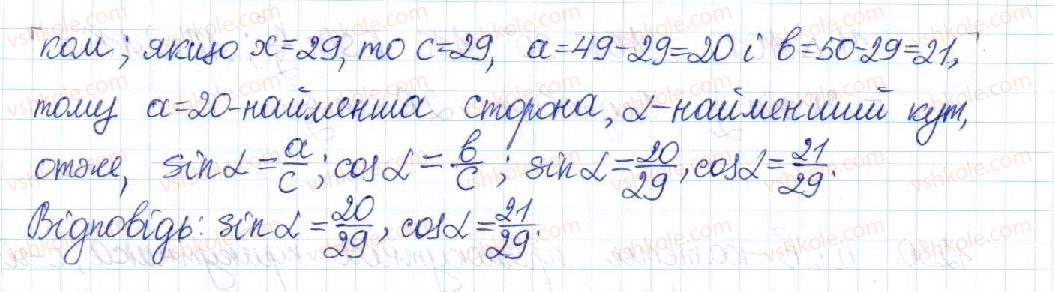 ком; якщо x=29, то c=29, a=49-29=20 і b=50-29=21,
тому a=20-найменша сторона, α-найменший кут,
отже, sinα=a/c; cosα=b/c; sinα=20/29, cosα=21/29.
Відповідь: sinα=20/29, cosα=21/29.